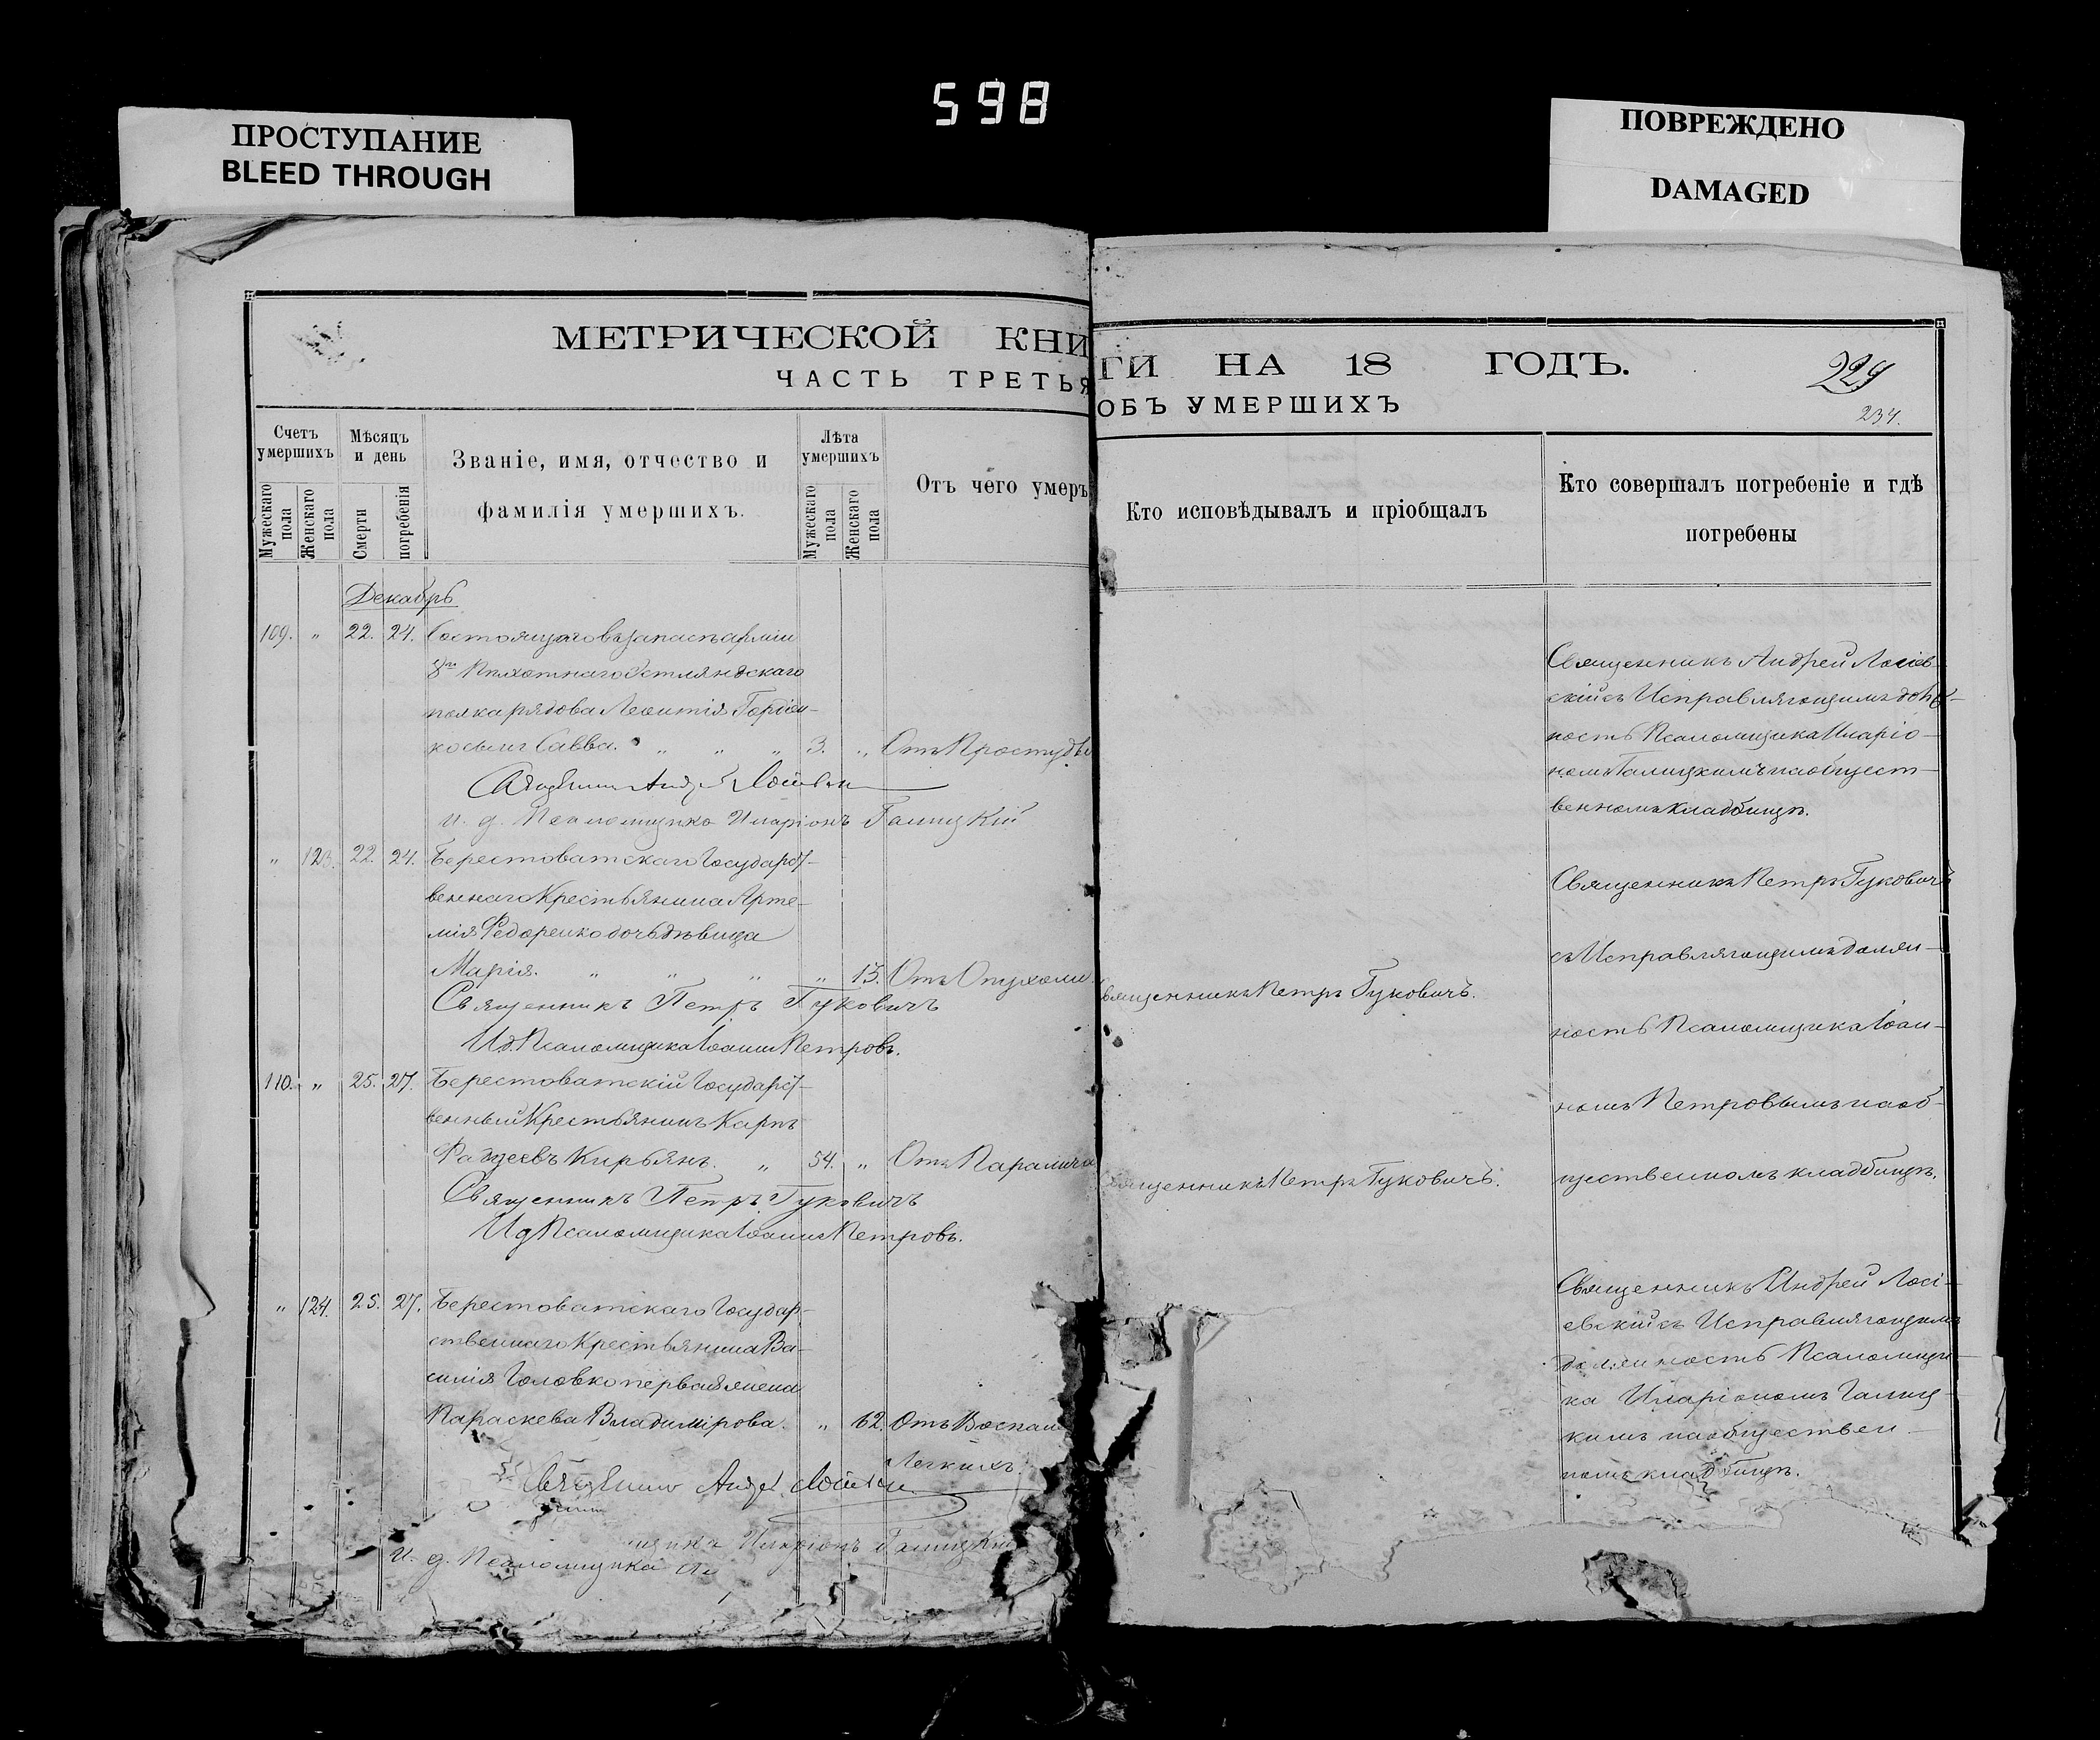 598
ПРОСТУПАНИЕ
BLEED THROUGH
ПОВРЕЖДЕНО
DAMAGED
МЕТРИЧЕСКОЙ КНИГИ НА 18 ГОДЪ.
ЧАСТЬ ТРЕТЬЯ ОБЪ УМЕРШИХЪ
229
234.
Счетъ умершихъ
Мужескаго пола
Женскаго пола
Мѣсяцъ и день
Смерти
погребенія
Званіе, имя, отчество и
фамилія умершихъ.
Лѣта умершихъ
Мужескаго пола
Женскаго пола
Отъ чего умеръ
Кто исповѣдывалъ и пріобщалъ
Кто совершалъ погребеніе и гдѣ
погребены
Декабрь
109. " 22. 24. Состоящаго въ запасѣ арміи
8го Пѣхотнаго Эстляндскаго
полка рядова Леонтія Гордіен-
ко сынъ Савва. " " " 3. " Отъ Простуды
Священникъ Андрей
и. д. Псаломщика Иларіонъ Галицкій
Священникъ Андрей Лосіев-
скій съ Исправляющимъ долж-
ность Псаломщика Иларіо-
номъ Галицкимъ на общест-
венномъ кладбищѣ.
" 123. 22. 24. Берестоватскаго Государст-
веннаго Крестьянина Арте-
мія Федоренко дочь дѣвица
Марія. " " " " 15. Отъ Опухоли
Священникъ Петръ Гуковичъ
И д. Псаломщика Іоаннъ Петровъ.
Священникъ Петръ Гуковичъ.
Священникъ Петръ Гуковичъ
съ Исправляющимъ должн-
ность Псаломщика Іоан-
номъ Петровымъ на об-
щественномъ кладбищѣ.
110. " 25. 27. Берестоватскій Государст-
венный Крестьянинъ Карпъ
Кирьянъ. " 54. " Отъ Паралича
Священникъ Петръ Гуковичъ
И д Псаломщика Іоаннъ Петровъ.
Священникъ Петръ Гуковичъ.
" 124. 25. 27. Берестоватскаго Государ-
ственнаго Крестьянина Ва-
силія Головко первая жена
Параскева Владимірова. " 62. Отъ Воспал
Легкихъ.
Андрей
щикъ Иларіонъ Галицкій
и. д. Псаломщика
Священникъ Андрей Лосі-
евскій съ Исправляющимъ
должность Псаломщи-
ка Иларіономъ Галиц-
кимъ на обществен-
номъ кладбищѣ.